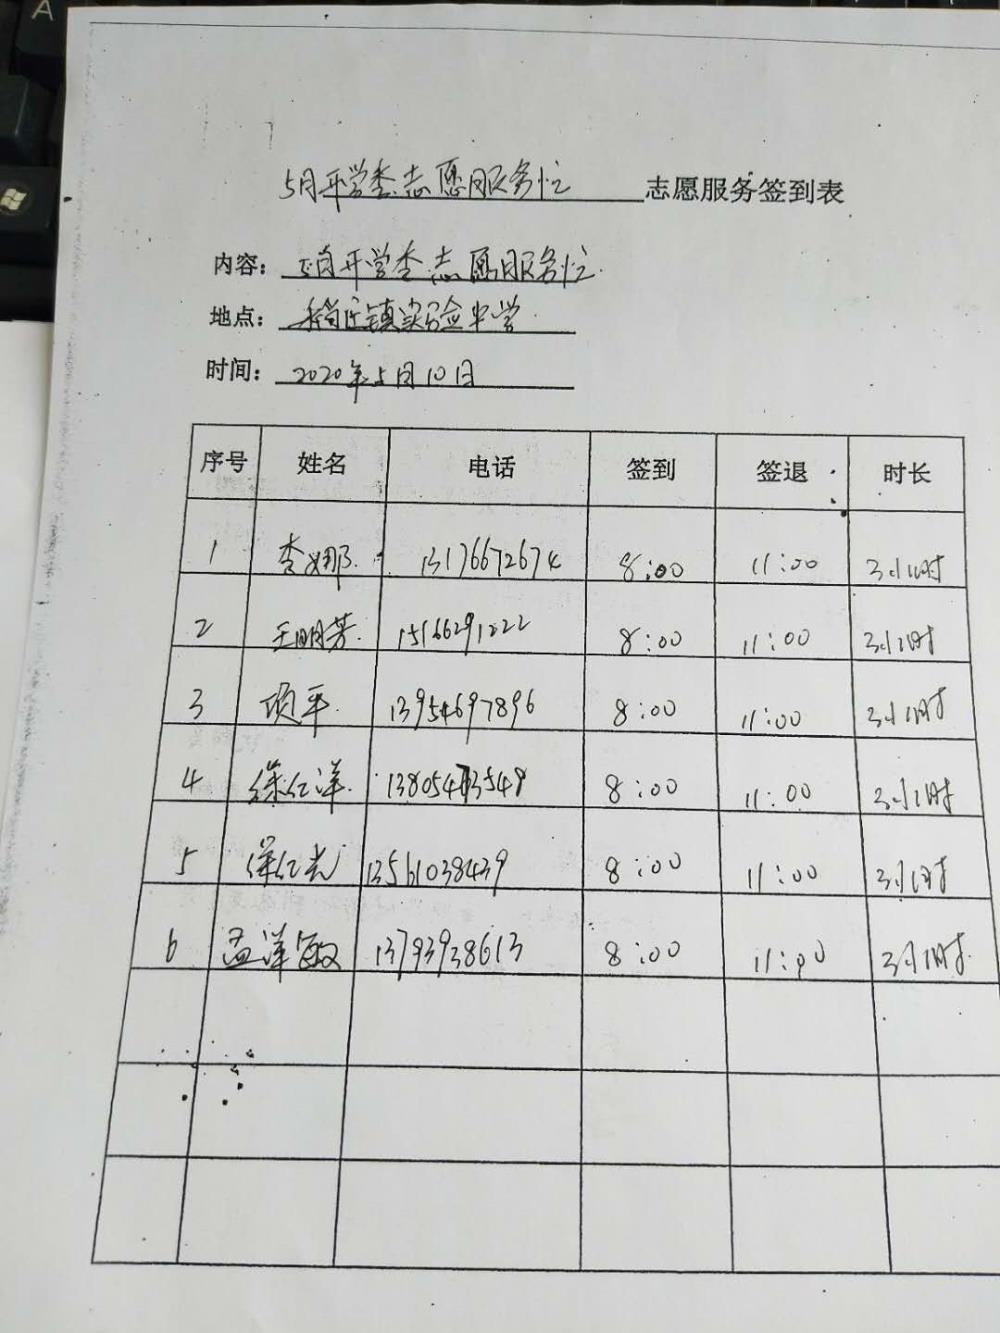 A
5月开学季志愿服务忙 志愿服务签到表
内容: 5月开学季志愿服务忙.
地点: 稻庄镇实验中学.
时间: 2020年5月10日
序号 姓名 电话 签到 签退 时长
1 李娜. 13176672674 8:00 11:00 3小时
2 王明芳. 15166291222 8:00 11:00 3小时
3 项平. 13954697896 8:00 11:00 3小时
4 徐仁洋. 8:00 11:00 3小时
5 徐仁光 13561038439 8:00 11:00 3小时
6 孟洋 13793938613 8:00 11:00 3小时.